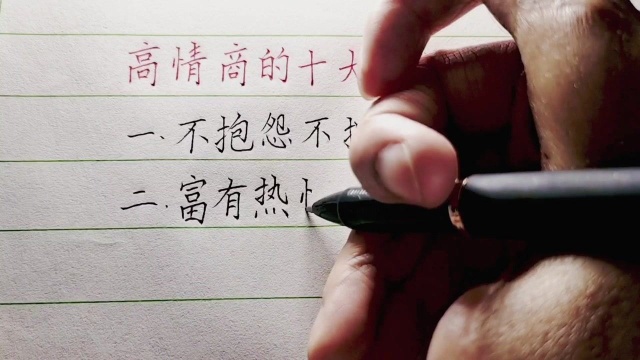 高情商的十大
一.不抱怨不
二.富有热